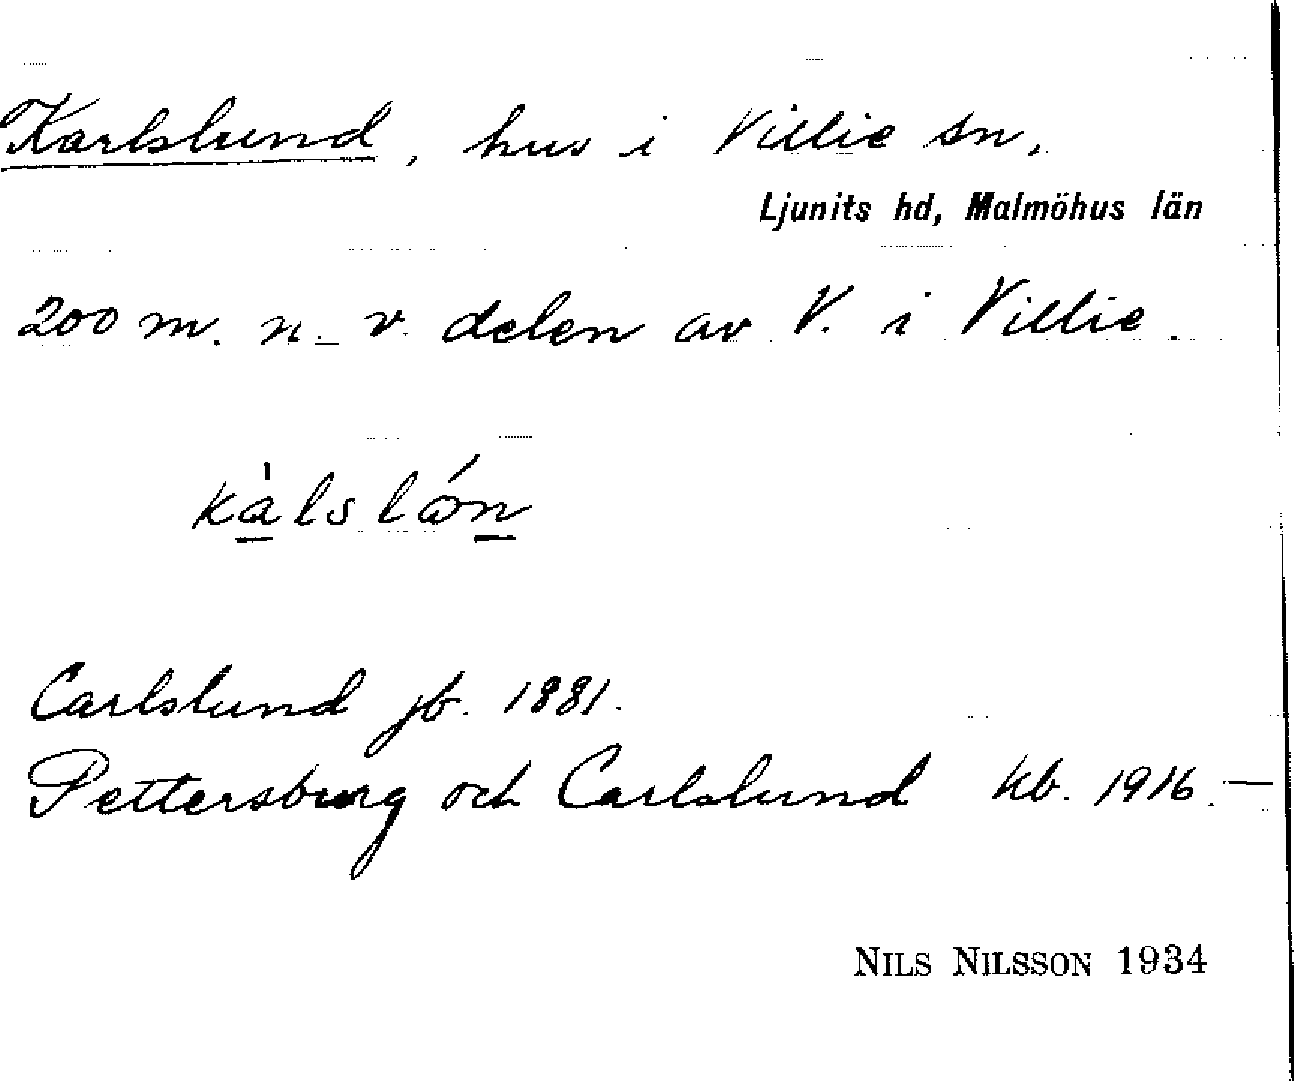 Karlslund, hus i Villie sn,
Ljunits hd, Malmöhus län
200 m. n. v. delen av V. i Villie.
Carlslund jb. 1881.
Pettersburg och Carlslund kb. 1916.—
NILS NILSSON 1934